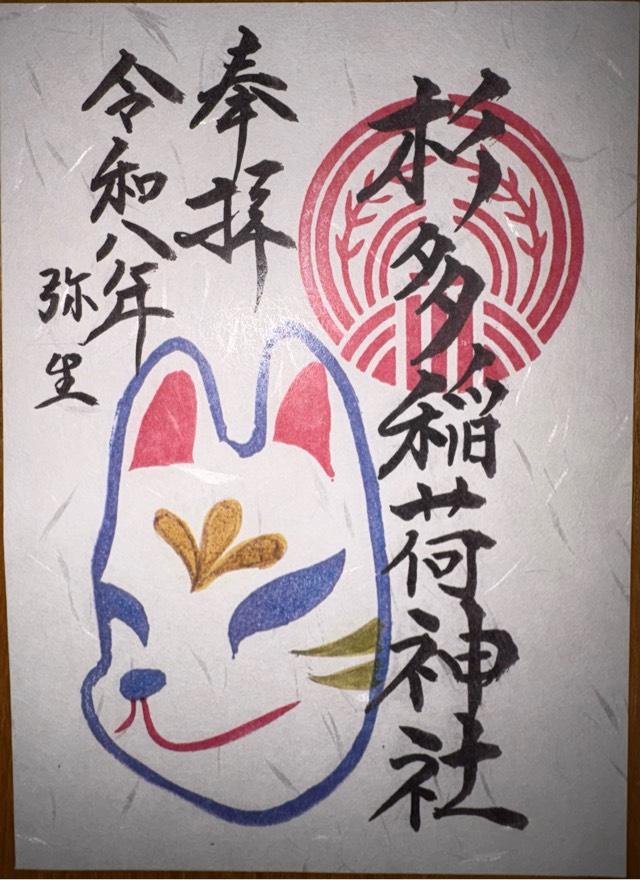 杉多稲荷神社
奉拝
令和八年
弥生